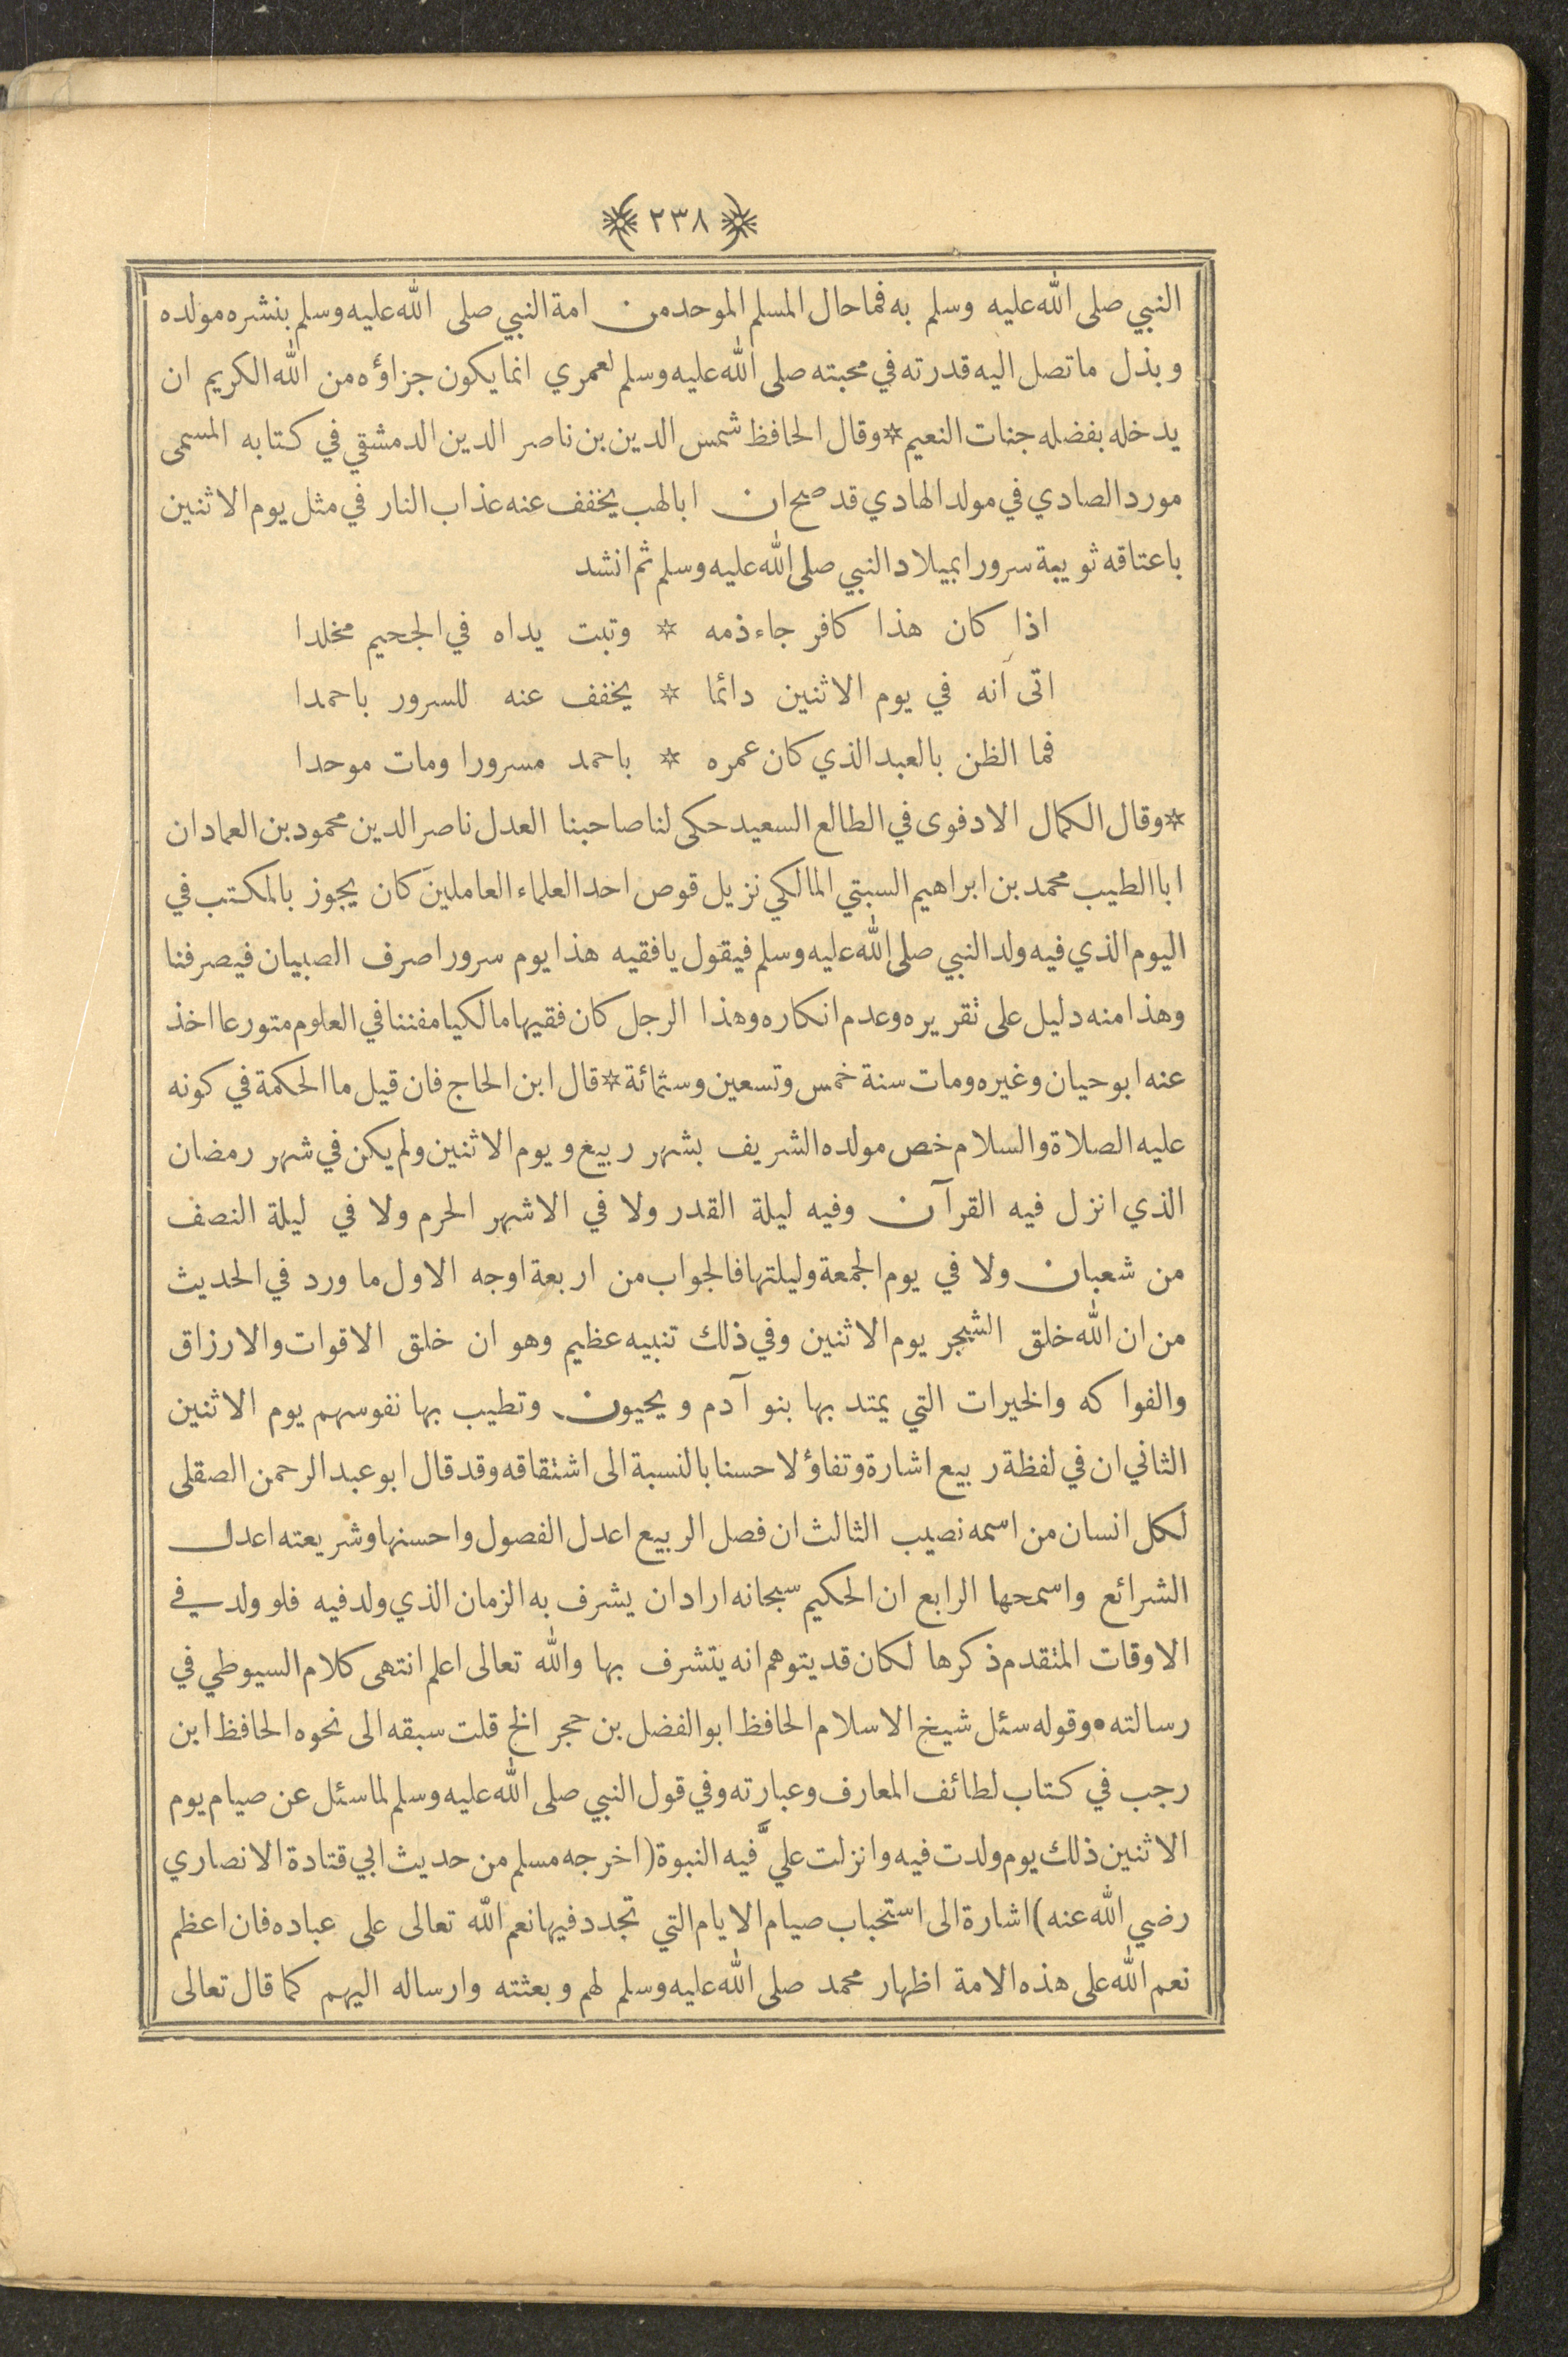 ﴿ ٢٣٨ ﴾
النبي صلى الله عليه وسلم به فما حال المسلم الموحد من امة النبي صلى الله عليه وسلم بنشره مولده
وبذل ما تصل اليه قدرته في محبته صلى الله عليه وسلم لعمري انما يكون جزاؤه من الله الكريم ان
يدخله بفضله جنات النعيم * وقال الحافظ شمس الدين بن ناصر الدين الدمشقي في كتابه المسمى
مورد الصادي في مولد الهادي قد صح ان ابا لهب يخفف عنه عذاب النار في مثل يوم الاثنين
باعتاقه ثويبة سرورا بميلاد النبي صلى الله عليه وسلم ثم انشد
اذا كان هذا كافر جاء ذمه * وتبت يداه في الجحيم مخلدا
اتى أنه في يوم الاثنين دائما * يخفف عنه للسرور باحمدا
فما الظن بالعبد الذي كان عمره * باحمد مسرورا ومات موحدا
* وقال الكمال الادفوى في الطالع السعيد حكى لنا صاحبنا العدل ناصر الدين محمود بن العماد ان
ابا الطيب محمد بن ابراهيم السبتي المالكي نزيل قوص احد العلماء العاملين كان يجوز بالمكتب في
اليوم الذي فيه ولد النبي صلى الله عليه وسلم فيقول يا فقيه هذا يوم سرور اصرف الصبيان فيصرفنا
وهذا منه دليل على تقريره وعدم انكاره وهذا الرجل كان فقيها مالكيا مفننا في العلوم متورعا اخذ
عنه ابو حيان وغيره ومات سنة خمس وتسعين وستمائة * قال ابن الحاج فان قيل ما الحكمة في كونه
عليه الصلاة والسلام خص مولده الشريف بشهر ربيع ويوم الاثنين ولم يكن في شهر رمضان
الذي انزل فيه القرآن وفيه ليلة القدر ولا في الاشهر الحرم ولا في ليلة النصف
من شعبان ولا في يوم الجمعة وليلتها فالجواب من اربعة اوجه الاول ما ورد في الحديث
من ان الله خلق الشجر يوم الاثنين وفي ذلك تنبيه عظيم وهو ان خلق الاقوات والارزاق
والفواكه والخيرات التي يمتد بها بنو آدم ويحيون وتطيب بها نفوسهم يوم الاثنين
الثاني ان في لفظة ربيع اشارة وتفاؤلا حسنا بالنسبة الى اشتقاقه وقد قال ابو عبد الرحمن الصقلى
لكل انسان من اسمه نصيب الثالث ان فصل الربيع اعدل الفصول واحسنها وشريعته اعدل
الشرائع واسمحها الرابع ان الحكيم سبحانه اراد ان يشرف به الزمان الذي ولد فيه فلو ولد في
الاوقات المتقدم ذكرها لكان قد يتوهم انه يتشرف بها والله تعالى اعلم انتهى كلام السيوطي في
رسالته • وقوله سئل شيخ الاسلام الحافظ ابو الفضل بن حجر الخ قلت سبقه الى نحوه الحافظ ابن
رجب في كتاب لطائف المعارف وعبارته وفي قول النبي صلى الله عليه وسلم لما سئل عن صيام يوم
الاثنين ذلك يوم ولدت فيه وانزلت عليَّ فيه النبوة (اخرجه مسلم من حديث ابي قتادة الانصاري
رضي الله عنه) اشارة الى استحباب صيام الايام التي تجدد فيها نعم الله تعالى على عباده فان اعظم
نعم الله على هذه الامة اظهار محمد صلى الله عليه وسلم لهم وبعثته وارساله اليهم كما قال تعالى